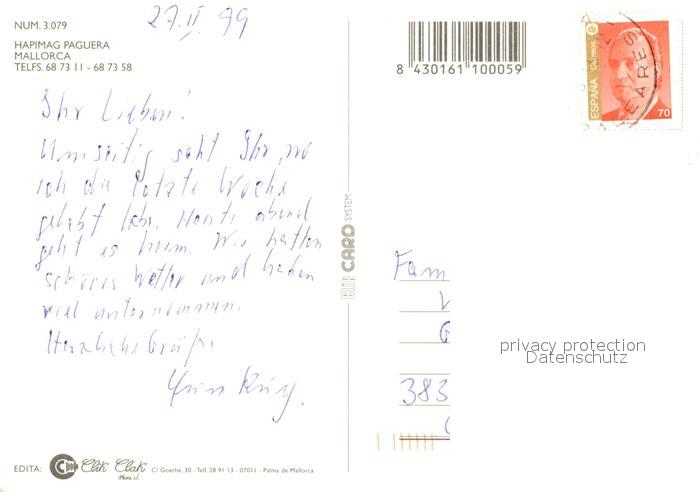 27.II 99
NUM. 3.079
HAPIMAG PAGUERA
MALLORCA
TELFS. 68 73 11 - 68 73 58
Ihr Lieben!
Umseitig seht Ihr, wo
ich die letzte Woche
gelebt habe. Heute abend
geht es heim. Wir hatten
schönes Wetter und haben
viel unternommen.
Herzliche Grüße
EDITA: Clik Clak
Photo, sl.
C/ Goethe, 30 - Telf. 28 91 13 - 07011 - Palma de Mallorca
CARD SYSTEM
8 430161 100059
ESPAÑA Correos
70
EARES
Fam
383
privacy protection
Datenschutz